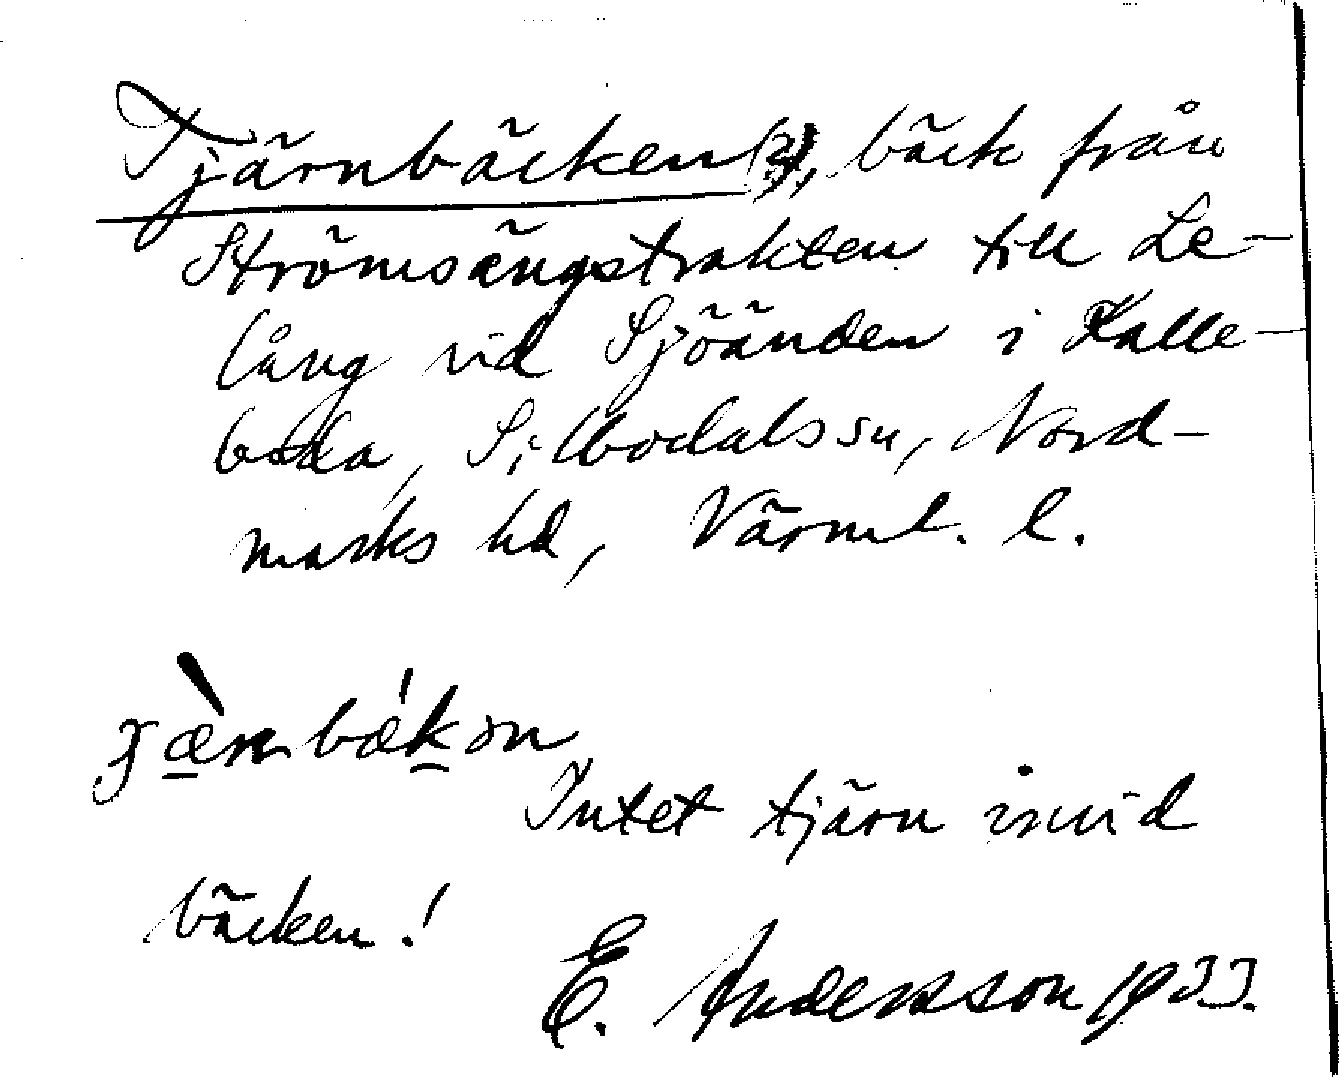 Tjärnbäcken(?), bäck från
Strömsängstrakten till Le-
lång vid Sjöänden i Kalle-
boda, Silbodals sn, Nord-
marks hd, Värml. l.
Intet tjärn invid
bäcken!
E. Andersson 1933.